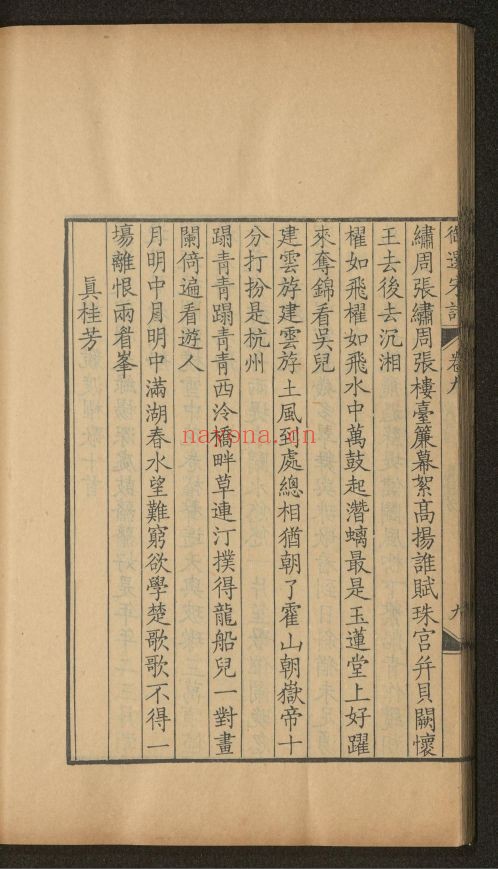 御選宋詩 卷九 九
繡周張繡周張樓臺簾幕絮髙揚誰賦珠宮幷貝闕懷
王去後去沉湘
櫂如飛櫂如飛水中萬鼓起潛螭最是玉蓮堂上好躍
來奪錦看吳兒
建雲斿建雲斿土風到處總相猶朝了霍山朝嶽帝十
分打扮是杭州
蹋青青蹋青青西泠橋畔草連汀撲得龍船兒一對畫
闌倚遍看遊人
月明中月明中滿湖春水望難窮欲學楚歌歌不得一
塲離恨兩眉峯
眞桂芳
nayona.cn